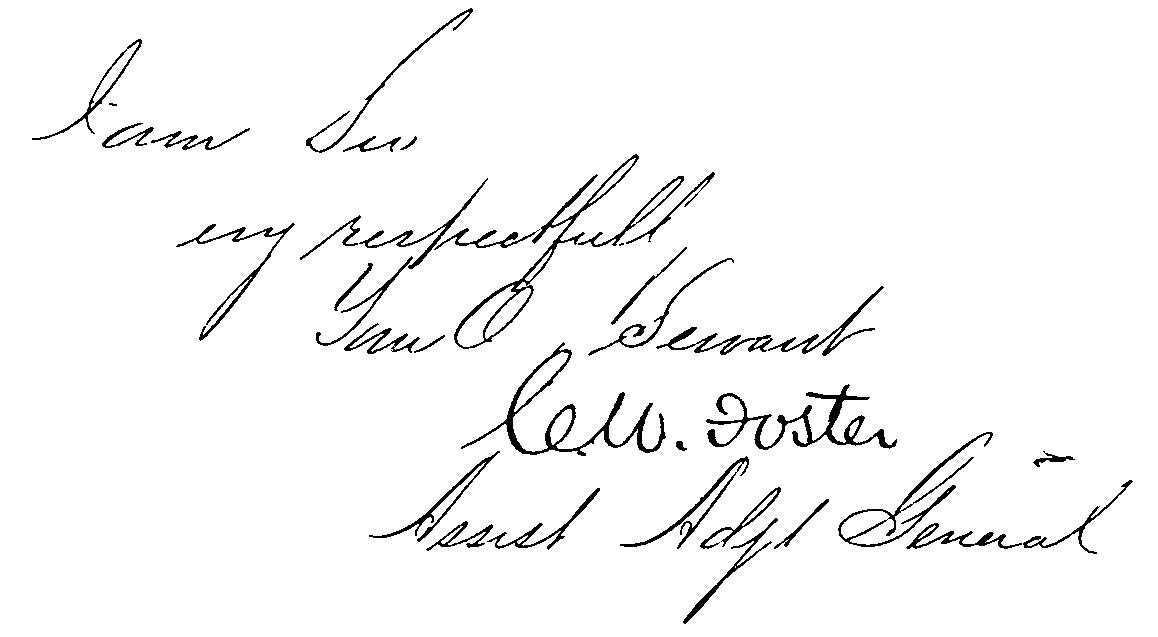 I am Sir
ery respectfull
Your O Servant
C. W. Foster
Assist Adjt General